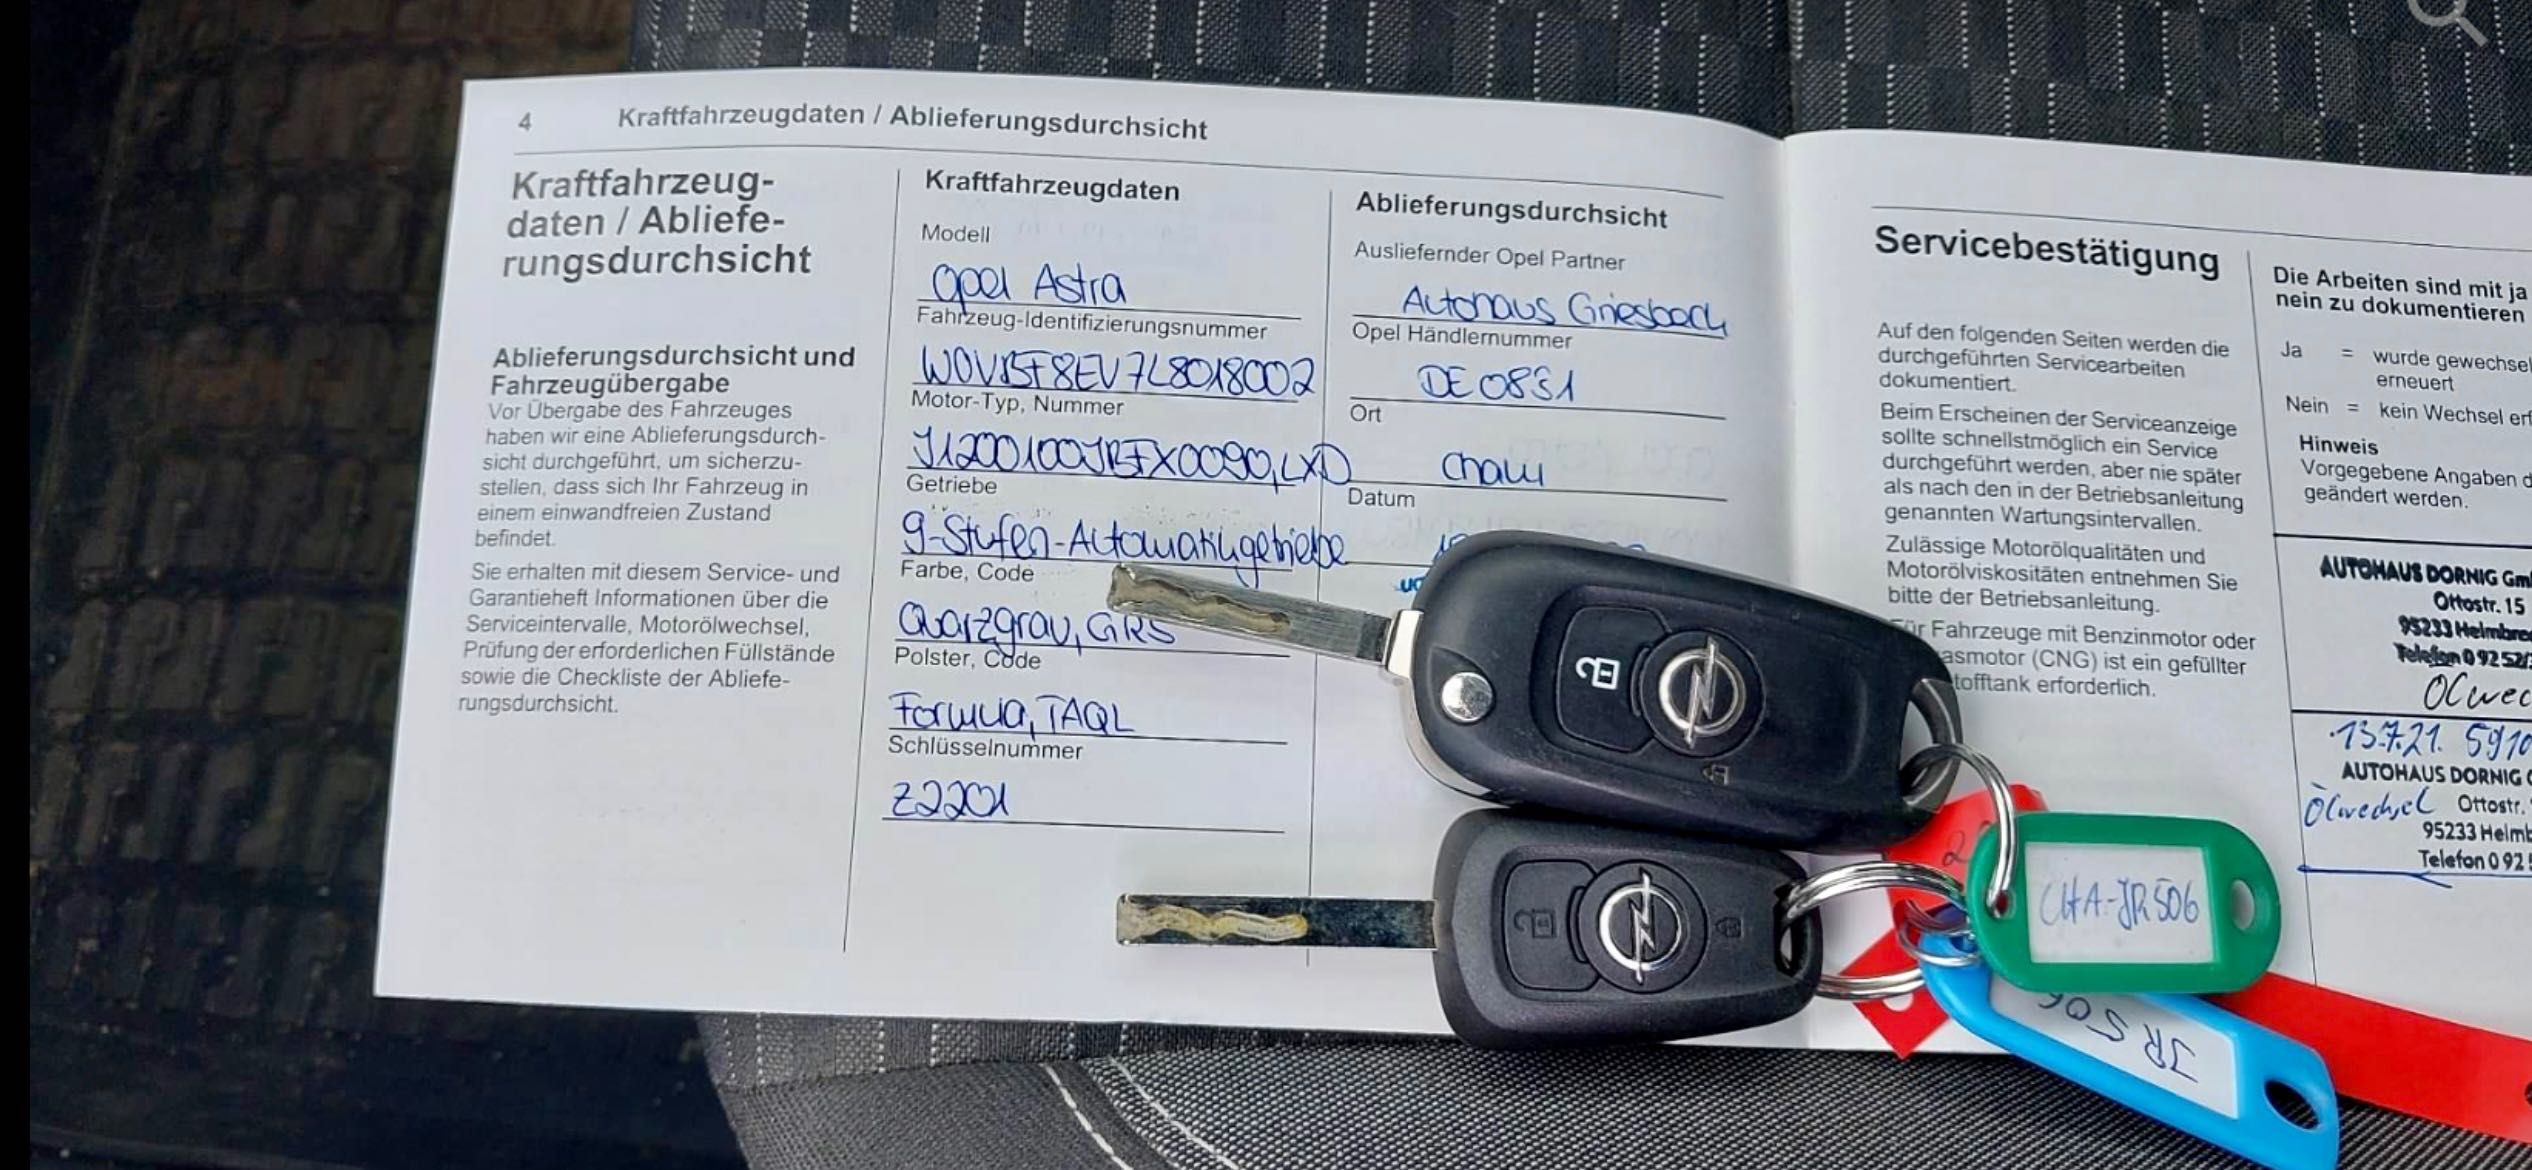 4 Kraftfahrzeugdaten / Ablieferungsdurchsicht
Kraftfahrzeug-
daten / Abliefe-
rungsdurchsicht
Ablieferungsdurchsicht und
Fahrzeugübergabe
Vor Übergabe des Fahrzeuges
haben wir eine Ablieferungsdurch-
sicht durchgeführt, um sicherzu-
stellen, dass sich Ihr Fahrzeug in
einem einwandfreien Zustand
befindet.
Sie erhalten mit diesem Service- und
Garantieheft Informationen über die
Serviceintervalle, Motorölwechsel,
Prüfung der erforderlichen Füllstände
sowie die Checkliste der Abliefe-
rungsdurchsicht.
Kraftfahrzeugdaten
Modell
Opel Astra
Fahrzeug-Identifizierungsnummer
Motor-Typ, Nummer
Getriebe
9-Stufen-Automatikgetriebe
Farbe, Code
Quarzgrau, GRS
Polster, Code
Formula, TAQL
Schlüsselnummer
Z2201
Ablieferungsdurchsicht
Ausliefernder Opel Partner
Autohaus Griesbach
Opel Händlernummer
Ort
Cham
Datum
Servicebestätigung
Auf den folgenden Seiten werden die
durchgeführten Servicearbeiten
dokumentiert.
Beim Erscheinen der Serviceanzeige
sollte schnellstmöglich ein Service
durchgeführt werden, aber nie später
als nach den in der Betriebsanleitung
genannten Wartungsintervallen.
Zulässige Motorölqualitäten und
Motorölviskositäten entnehmen Sie
bitte der Betriebsanleitung.
Für Fahrzeuge mit Benzinmotor oder
asmotor (CNG) ist ein gefüllter
tofftank erforderlich.
Die Arbeiten sind mit ja
nein zu dokumentieren
Ja = wurde gewechsel
erneuert
Nein = kein Wechsel erf
Hinweis
Vorgegebene Angaben d
geändert werden.
AUTOHAUS DORNIG Gm
Ottostr. 15
95233 Helmbre
Telefon 0 92 52/
Ölwec
13.7.21. 5910
AUTOHAUS DORNIG G
Ölwechsel Ottostr.
95233 Helmb
Telefon 0 92 5
CHA-JR 506
JR 506